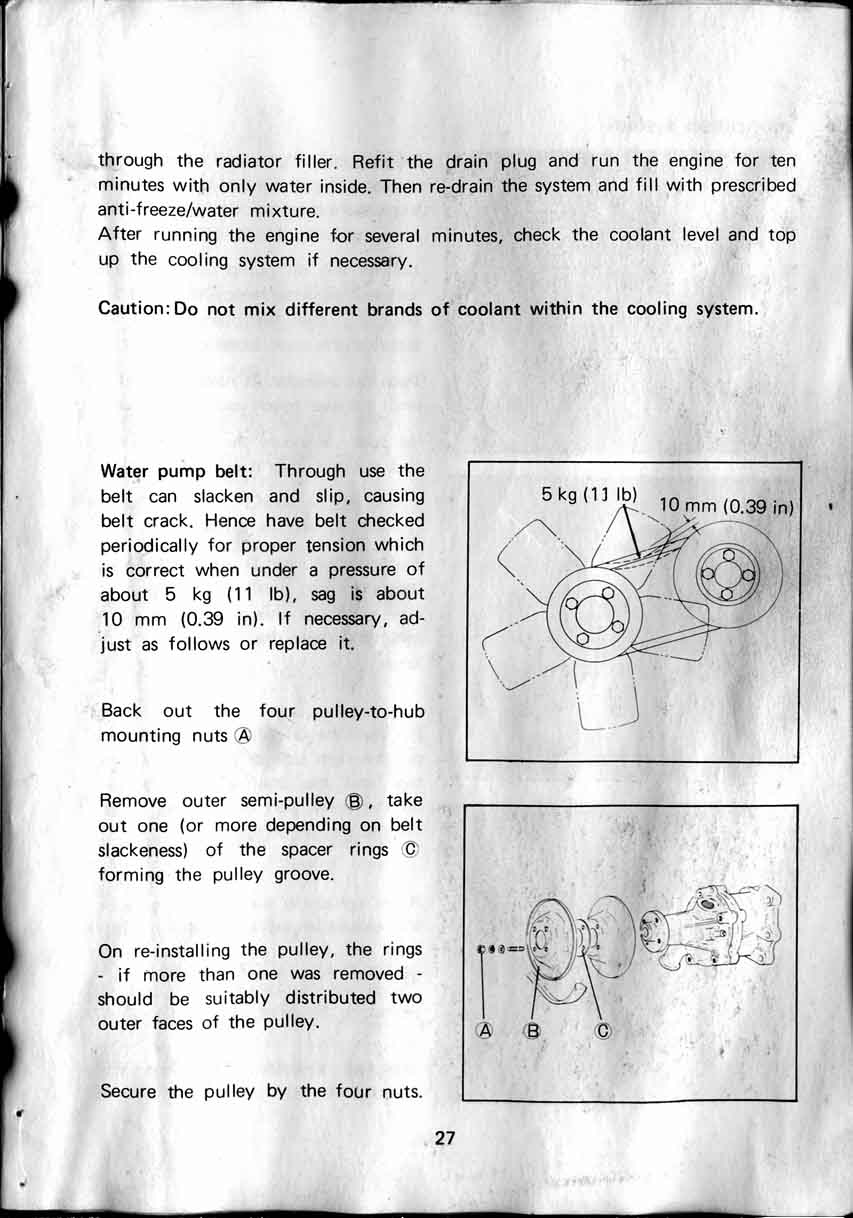 through the radiator filler. Refit the drain plug and run the engine for ten
minutes with only water inside. Then re-drain the system and fill with prescribed
anti-freeze/water mixture.
After running the engine for several minutes, check the coolant level and top
up the cooling system if necessary.
Caution: Do not mix different brands of coolant within the cooling system.
Water pump belt: Through use the
belt can slacken and slip, causing
belt crack. Hence have belt checked
periodically for proper tension which
is correct when under a pressure of
about 5 kg (11 lb), sag is about
10 mm (0.39 in). If necessary, ad-
just as follows or replace it.
Back out the four pulley-to-hub
mounting nuts Ⓐ
Remove outer semi-pulley Ⓑ, take
out one (or more depending on belt
slackeness) of the spacer rings Ⓒ
forming the pulley groove.
On re-installing the pulley, the rings
- if more than one was removed -
should be suitably distributed two
outer faces of the pulley.
Secure the pulley by the four nuts.
5 kg (11 lb)
10 mm (0.39 in)
Ⓐ Ⓑ Ⓒ
27